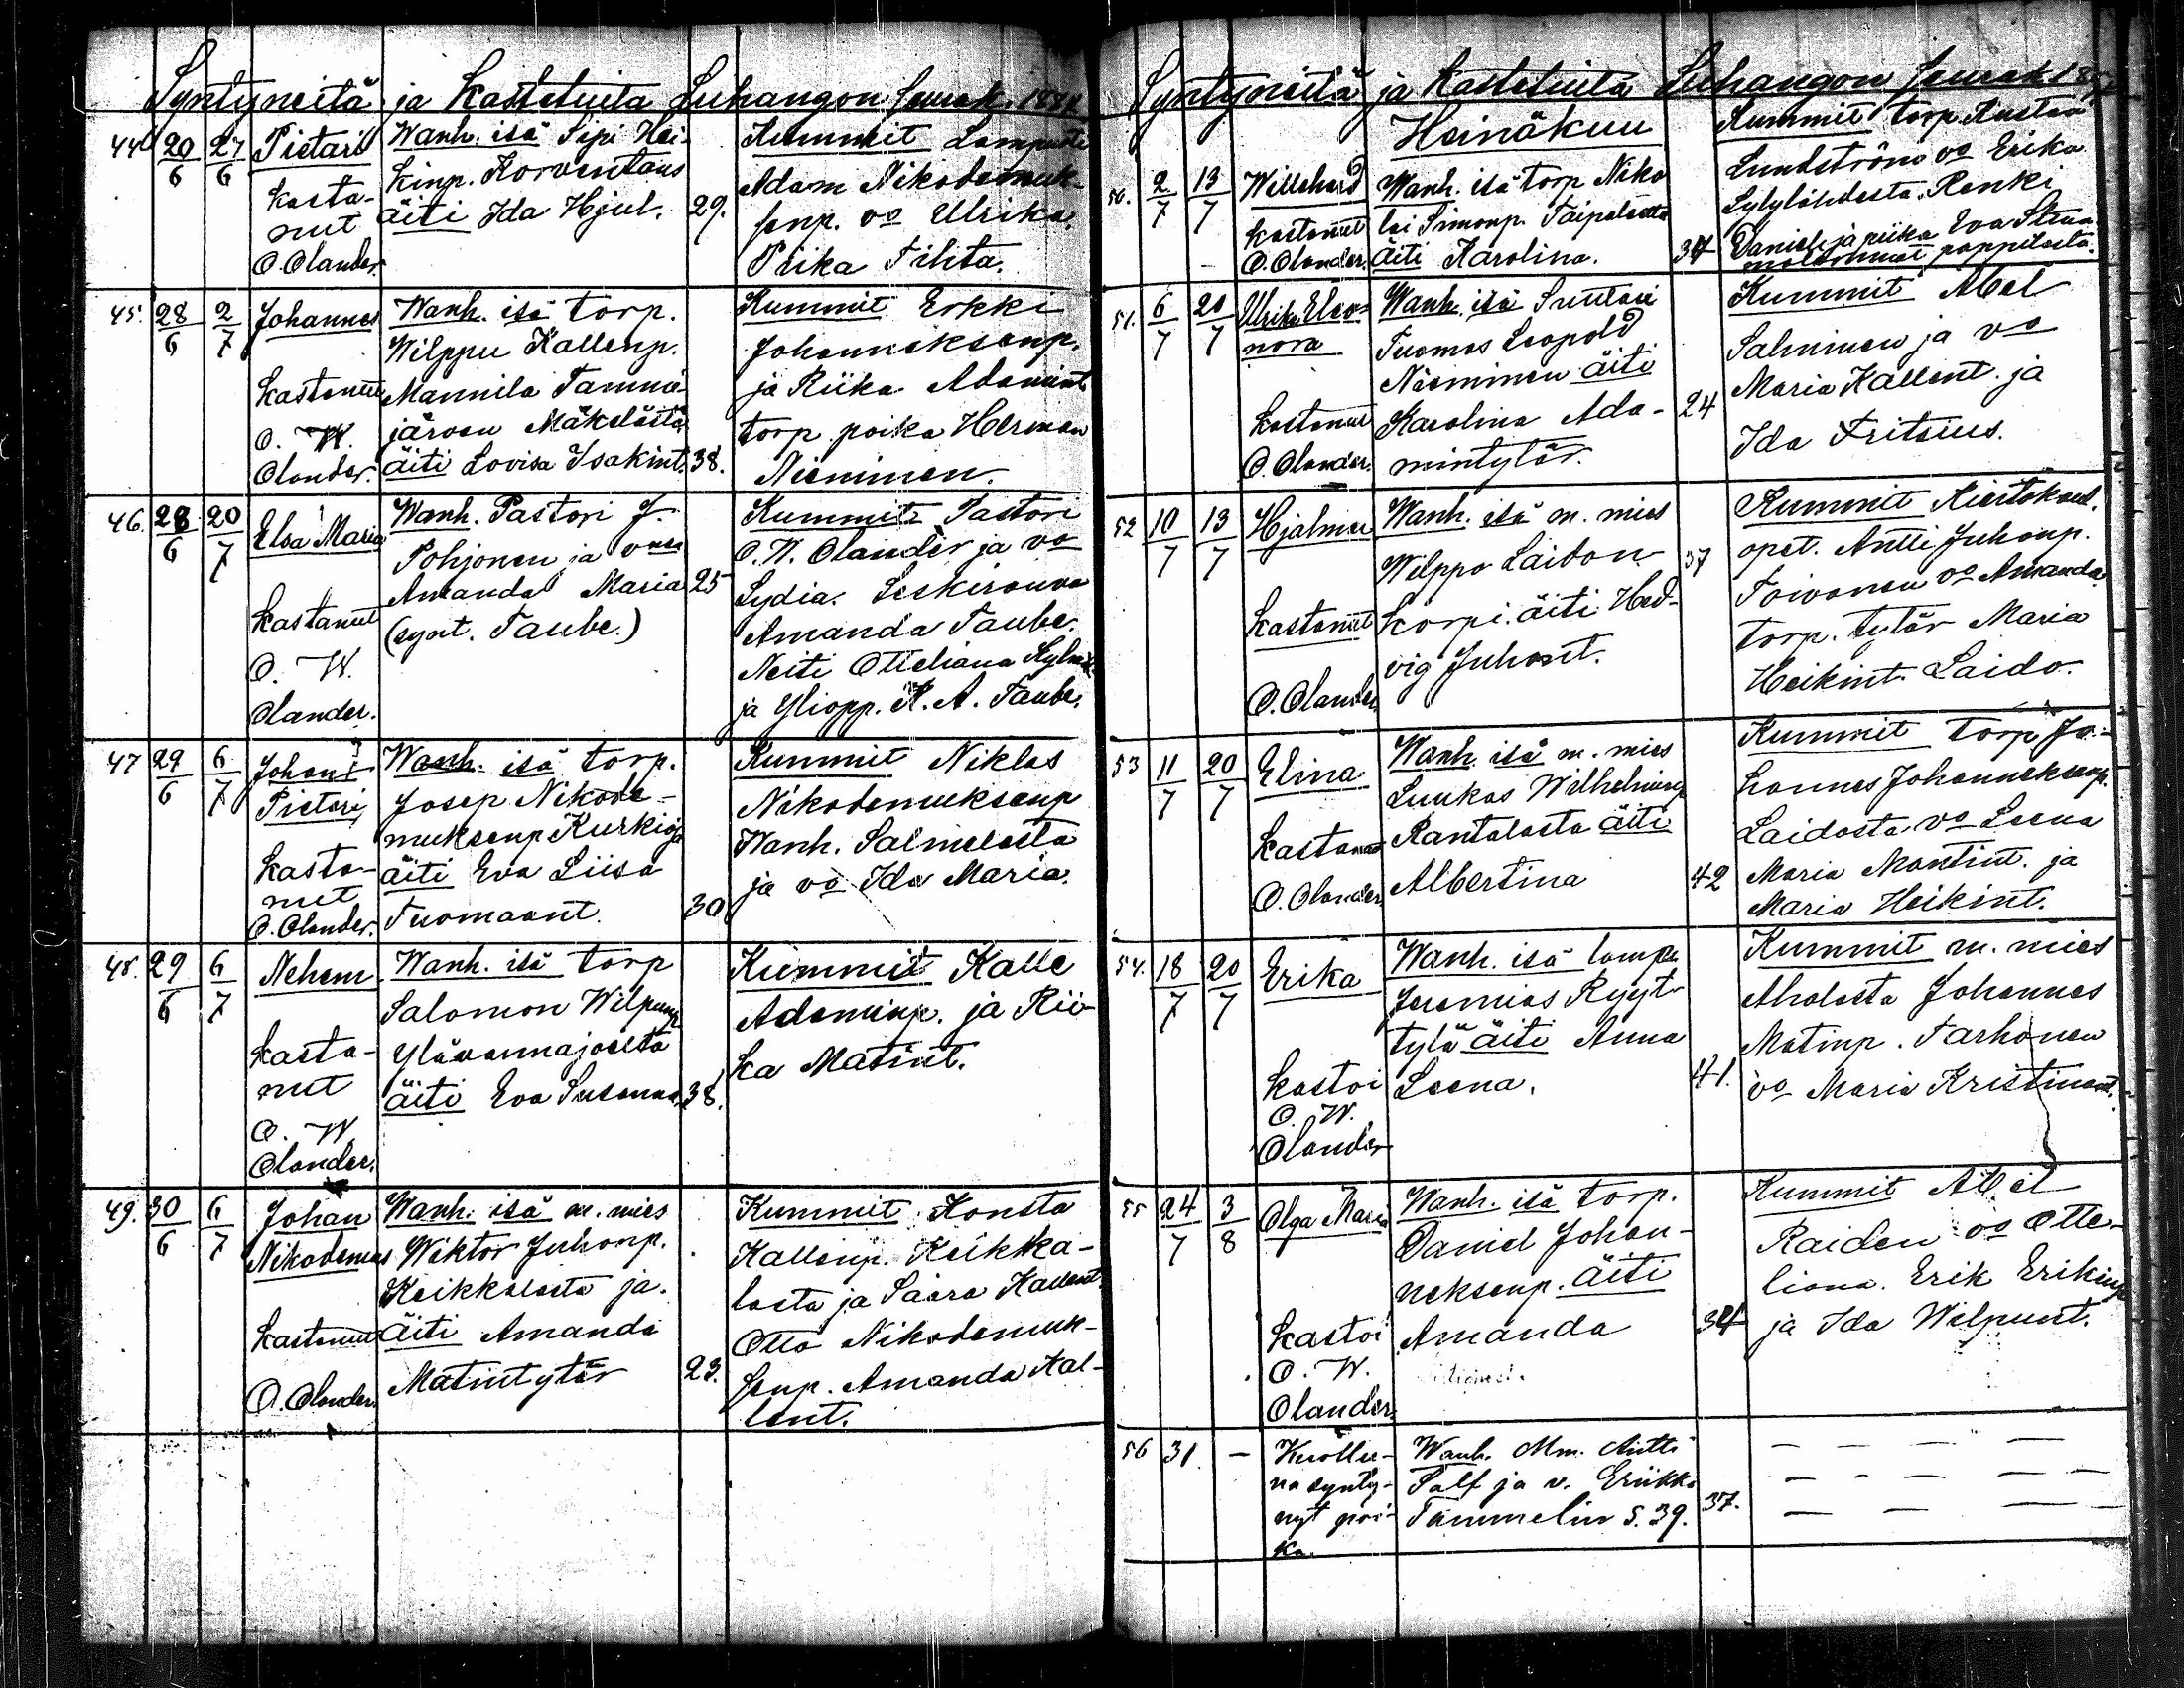 Syntyneitä ja Kastetuita Luhangon seurak. 1884
44 20/6 27/6 Pietari
kasta-
nut
O. Olander
Wanh. isä Sipi Hei-
kinp. Korventaus
äiti Ida Hjul. 29.
Kummit Lampuoti
Adam Nikodemuk-
senp. vo Ulrika.
Piika Tilita.
45. 28/6 2/7 Johannes
Kastanut
O. W.
Olander.
Wanh. isä torp.
Wilppu Kallenp.
Mannila Tammi-
järven Mäkelästä
äiti Lovisa Isakint. 38.
Kummit Erkki
Johanneksenp.
ja Riika Adamint.
torp. poika Herman
Nieminen.
46. 28/6 20/7 Elsa Maria
Kastanut
O. W.
Olander.
Wanh. Pastori J.
Pohjonen ja vmo
Amanda Maria 25
(synt. Taube.)
Kummit Pastori
O. W. Olander ja vo
Lydia. Leskirouva
Amanda Taube.
Neiti Otteliana
ja Yliopp. K. A. Taube.
47 29/6 6/7 Johan
Pietari
kasta-
nut
O. Olander.
Wanh. isä torp.
Josep Nikode-
muksenp Kurki
äiti Eva Liisa
Tuomaant. 30
Kummit Niklas
Nikodemuksenp
Wanh. Salmelasta
ja vo Ida Maria.
48. 29/6 6/7 Nehem
kasta-
nut
O. W.
Olander.
Wanh. isä torp
Salomon Wilpunp
Ylävannajoelta
äiti Eva Susanna. 38.
Kummit Kalle
Adaminp. ja Rii-
ka Matint.
49. 30/6 6/7 Johan
Nikodemus
Kastanut
O. Olander.
Wanh. isä m. mies
Wiktor Juhonp.
Keikkalasta ja.
äiti Amanda
Matintytär 23.
Kummit Konsta
Kallenp. Keikka-
lasta ja Saara Kallent
Otto Nikodemuk-
senp. Amanda Kal-
lent.
Syntyneitä ja Kastetuita Luhangon seurak 188
Heinäkuu
50. 2/7 13/7 Willehard
kastanut
O. Olander.
Wanh. isä torp Niko
lai Simonp. Taipaleelta
äiti Karolina. 34
Kummit torp. Kustaa
Lundström vo Erika
Sylylähdestä. Renki
Daniel ja piika Eva Stina
molemmat pappilasta.
51. 6/7 20/7 Ulrika Eleo-
nora
kastanut
O. Olander.
Wanh. isä Suutari
Tuomas Leopold
Nieminen äiti
Karolina Ada- 24
mintytär.
Kummit Abel
Salminen ja vo
Maria Kallent. ja
Ida Fritsius.
52 10/7 13/7 Hjalmar
kastanut
O. Olander.
Wanh. isä m. mies
Wilppo Laidon 37
korpi. äiti Hed-
vig Juhont.
Kummit Kiertokoul.
opet. Antti Juhonp.
Toivonen vo Amanda.
torp. tytär Maria
Heikint. Laido.
53 11/7 20/7 Elina
kastanut
O. Olander
Wanh. isä m. mies
Luukas Wilhelminp
Rantalasta äiti
Albertina 42
Kummit torp Jo-
hannes Johanneksenp.
Laidasta vo Leena
Maria Mantint. ja
Maria Heikint.
54. 18/7 20/7 Erika
kastoi
O. W.
Olander
Wanh. isä lamp.
Jeremias Ryyt-
tylä äiti Anna
Leena. 41.
Kummit m. mies
Aholasta Johannes
Matinp. Tarhonen
vo Maria Kristinant.
55 24/7 3/8 Olga Maria
kastoi
O. W.
Olander.
Wanh. isä torp.
Daniel Johan-
neksenp. äiti
Amanda 34
Kummit Abel
Raiden vo Otte-
liana. Erik Erikinp
ja Ida Wilpunt.
56 31. — Kuollee-
na synty-
nyt poi-
ka.
Wanh. Mm. Antti
Salf ja v. Eriikka
Tammelin s. 39. 37.
— — — —
— — — —
— — —